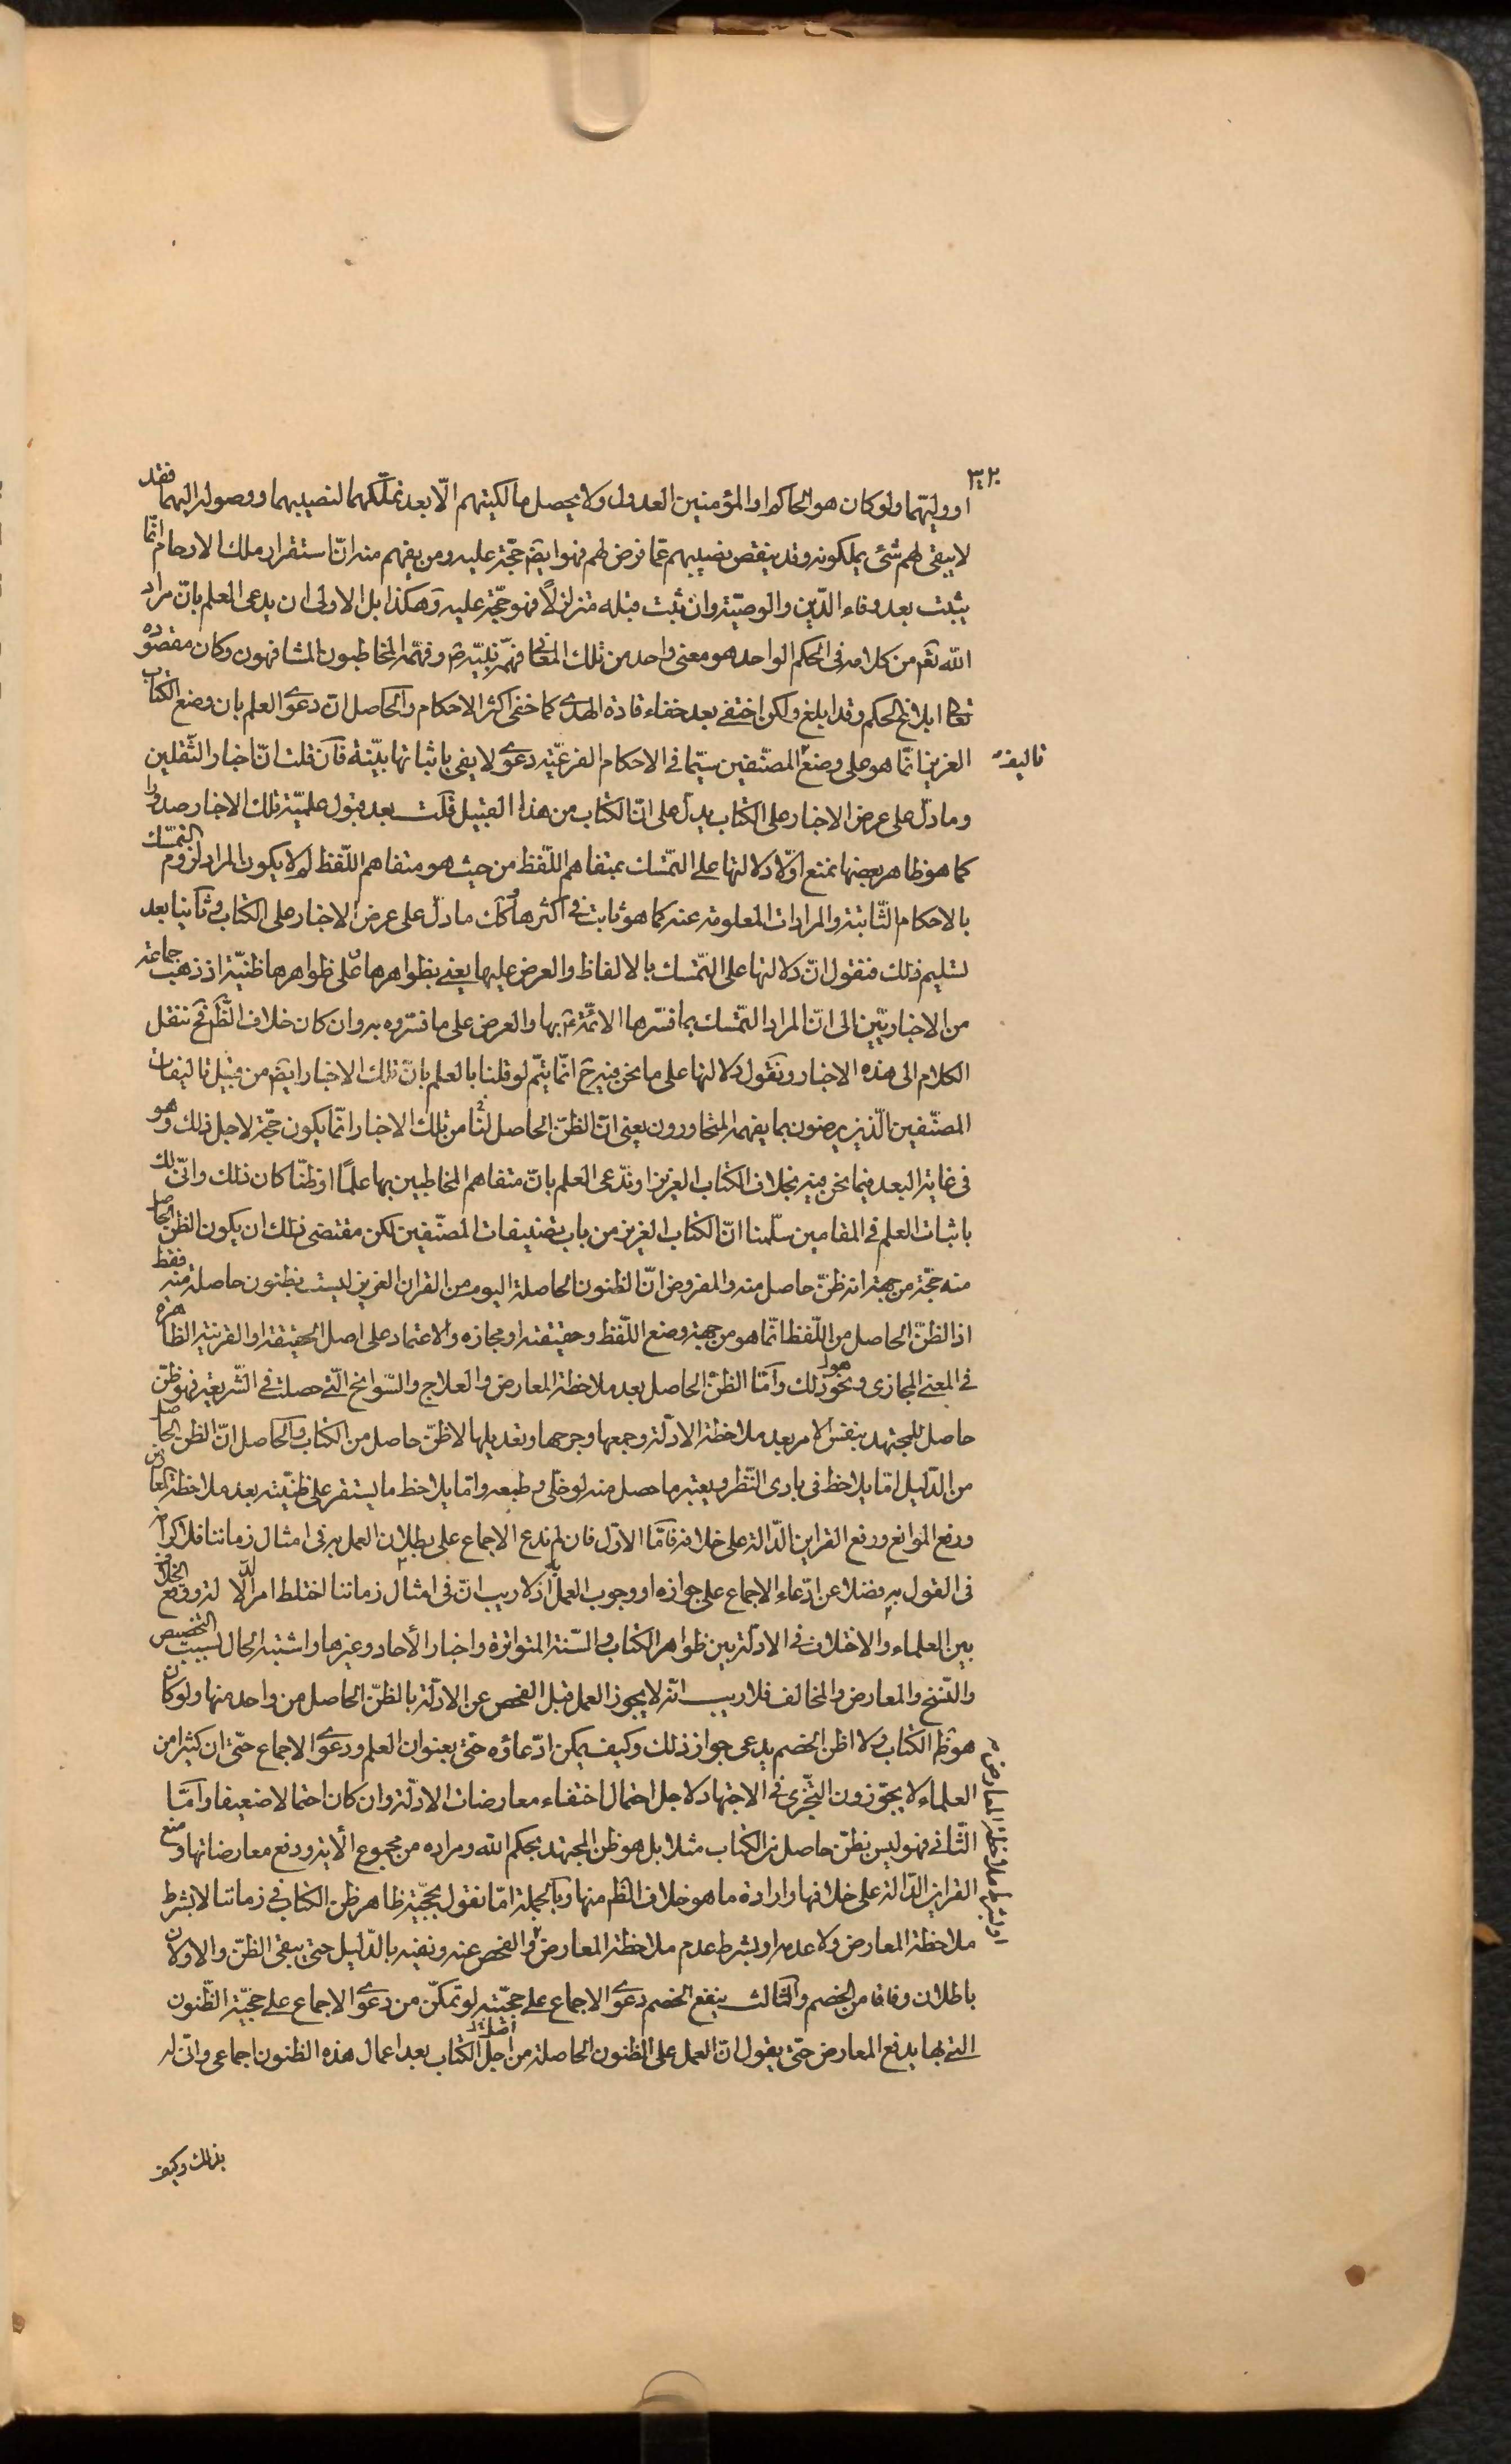 ٣٢٠
او وليّهما ولو كان هو الحاكم او المؤمنين العدول ولا يحصل مالكيتهم الّا بعد تملّكهما لنصيبهما ووصوله اليهما فقد
لا يبقى لهم شئ يملكونه وقد ينقص نصيبهم عمّا فرض لهم فهو ايضا حجّة عليه ومن يفهم منه انّ استقرار ملك الارحام انّما
يثبت بعد وفاء الدّين والوصيّة وان ثبت قبله متزلزلاً فهو حجّة عليه وهكذا بل الاولى ان يدعى العلم بانّ مراد
الله تعم من كلامه فى الحكم الواحد هو معنى واحد من تلك المعانى فهّمه نبيّه ص وفهّمه المخاطبون المشافهون وكان مقصوده
تعالى ابلاغ الحكم وقد ابلغ ولكن اختفى بعد خفاء قادة الهدى كما خفى اكثر الاحكام والحاصل ان دعوى العلم بان وضع الكتاب
العزيز انّما هو على وضع المصنّفين سيّما فى الاحكام الفرعيّة دعوى لا يفى باثباتها بيّنة فان قلت انّ اخبار الثّقلين
تاليف
وما دلّ على عرض الاخبار على الكتاب يدلّ على انّ الكتاب من هذا القبيل قلت بعد قبول علميّة تلك الاخبار صدورا
كما هو ظاهر بعضها نمنع اوّلا دلالتها على التّمسّك بمتفاهم اللّفظ من حيث هو متفاهم اللّفظ لم لا يكون المراد لزوم التمسّك
بالاحكام الثّابتة والمرادات المعلومة عنه كما هو ثابت فى اكثرها وكك ما دلّ على عرض الاخبار على الكتاب وثانيا بعد
تسليم ذلك فنقول انّ دلالتها على التّمسّك بالالفاظ والعرض عليها يعنى بظواهرها وعلى ظواهرها ظنيّة اذ ذهب جماعة
من الاخباريّين الى انّ المراد التّمسّك بما فسّرها الائمّة ع بها والعرض على ما فسّروه به وان كان خلاف الظّم فح ننقل
الكلام الى هذه الاخبار ونقول دلالتها على ما نحن فيه ح انّما يتمّ لو قلنا بالعلم بانّ تلك الاخبار ايضا من قبيل تاليفات
المصنّفين الّذين يرضون بما يفهمه المتحاورون يعنى انّ الظنّ الحاصل لنا من تلك الاخبار انّما يكون حجّة لاجل ذلك وهو
فى غاية البعد فيما نحن فيه بخلاف الكتاب العزيز او ندّعى العلم بانّ متفاهم المخاطبين بها علمًا او ظنّا كان ذلك وانّى لك
باثبات العلم فى المقامين سلّمنا انّ الكتاب العزيز من باب تصنيفات المصنّفين لكن مقتضى ذلك ان يكون الظنّ الحاصل
منه حجّة من جهة انه ظنّ حاصل منه والمفروض انّ الظنون الحاصلة اليوم من القران العزيز ليست بظنون حاصلة منه فقط
اذ الظنّ الحاصل من اللّفظ انّما هو من جهة وضع اللّفظ وحقيقته او مجازه والاعتماد على اصل الحقيقة او القرينة الظاهرة
فى المعنى المجازى ونحو ذلك وامّا الظنّ الحاصل بعد ملاحظة المعارض والعلاج والسّوانح الّتى حصلت فى الشّريعة فهو ظنّ
حاصل للمجتهد بنفس الامر بعد ملاحظة الادلّة وجمعها وجرحها وتعديلها لا ظنّ حاصل من الكتاب والحاصل انّ الظنّ الحاصل
من الدّليل امّا يلاحظ فى بادى النّظر ويعتبر ما حصل منه لو خلّى وطبعه وامّا يلاحظ ما يستقر على ظنيّته بعد ملاحظة المعارض
ورفع الموانع ورفع القراين الدّالة على خلافه فامّا الاوّل فان لم ندع الاجماع على بطلان العمل به فى امثال زماننا فلا كرامة
فى القول به فضلا عن ادّعاء الاجماع على جوازه او وجوب العمل به اذ لا ريب انّ فى امثال زماننا اختلط امر الادلّة ووقع الخلاف
بين العلماء والاختلاف فى الادلّة بين ظواهر الكتاب والسّنة المتواترة واخبار الأحاد وغيرها واشتبه الحال بسبب التخصيص
والنّسخ والمعارض والمخالف فلا ريب انّه لا يجوز العمل قبل الفحص عن الادلّة بالظنّ الحاصل من واحد منها ولو كان
هو ظم الكتاب ولا اظنّ الخصم يدعى جواز ذلك وكيف يمكن ادّعاؤه حتّى بعنوان العلم ودعوى الاجماع حتّى ان كثيرا من
العلماء لا يجوّزون التّجزّى فى الاجتهاد لاجل احتمال اختفاء معارضات الادلّة وان كان احتمالا ضعيفا وامّا
الثّانى فهو ليس بظنّ حاصل من الكتاب مثلا بل هو ظن المجتهد بحكم الله ومراده من مجموع الأية ودفع معارضاتها ومنع
القراين الدّالة على خلافها وارادة ما هو خلاف الظم منها وبالجملة امّا نقول بحجيّة ظاهر ظن الكتاب فى زماننا لا بشرط
ملاحظة المعارض ولا عدمه او بشرط عدم ملاحظة المعارض او الفحص عنه ونفيه بالدّليل حتى يبقى الظنّ والاولان
او بشرط ملاحظة المعارض
باطلان وفاقا من الخصم والثالث ينفع الخصم دعوى الاجماع على حجيّته لو تمكّن من دعوى الاجماع على حجيّة الظّنون
الّتى بها يدفع المعارض حتّى يقول انّ العمل على الظنون الحاصلة من اجل الكتاب بعد اعمال هذه الظنون اجماعى وانّى له
بذلك وكيف